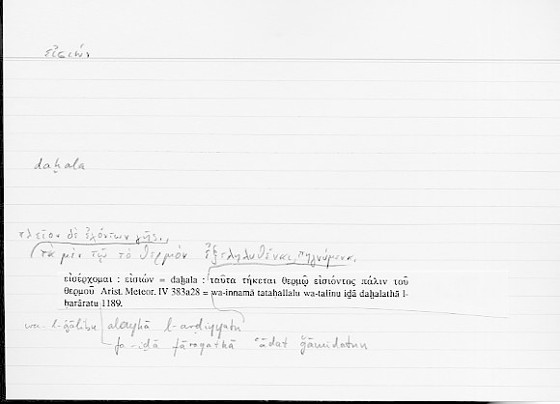 εἰσιών
daḫala
πλεῖον δὲ ἐχόντων γῆς,
τὰ μὲν τῷ τὸ θερμὸν ἐξεληλυθέναι πηγνύμενα,
εἰσέρχομαι : εἰσιών = daḫala : ταῦτα τήκεται θερμῷ εἰσιόντος πάλιν τοῦ
θερμοῦ Arist. Meteor. IV 383a28 = wa-innamā tataḥallalu wa-talīnu iḏā daḫalathā l-
ḥarāratu 1189.
wa-l-ġālibu alayhā l-arḍiyyatu
fa-iḏā fāraqathā ʿādat ǧāmidatun